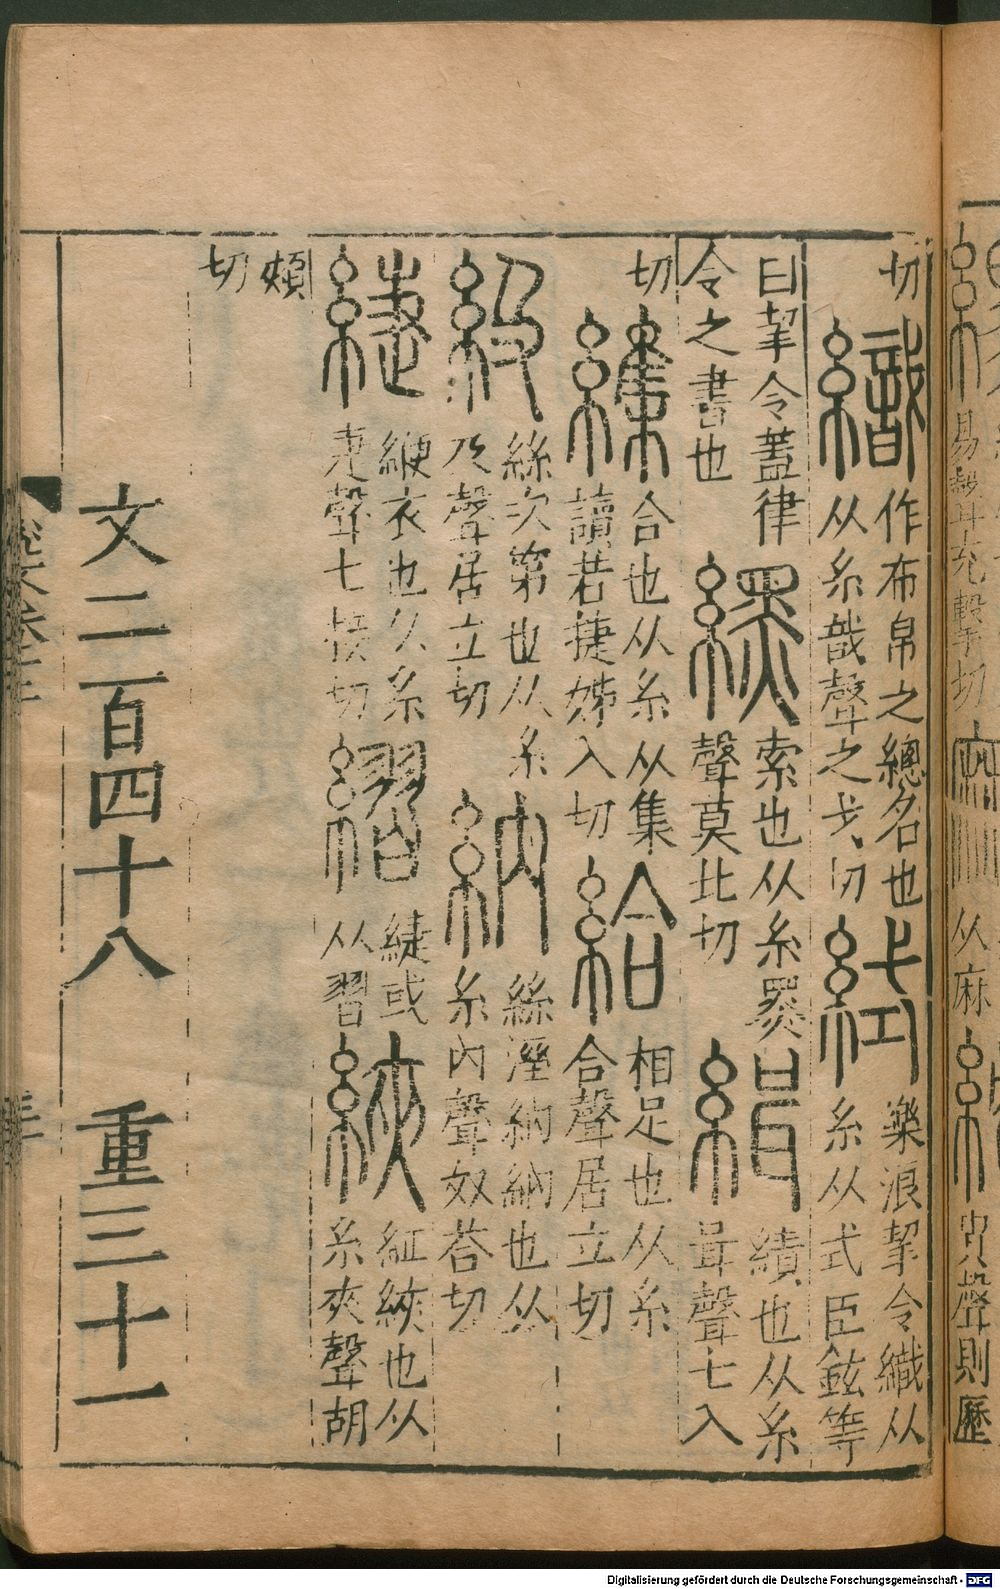 易聲
从麻
聲則歷
切織作布帛之總名也从糸戠聲之弋切𥿮樂浪挈令織从糸从式臣鉉等
曰挈令蓋律令之書也纆索也从糸黑聲莫北切緝績也从糸咠聲七入
切䌖合也从糸从集讀若捷姊入切給相足也从糸合聲居立切
級絲次第也从糸及聲居立切納絲溼納納也从糸內聲奴荅切
緁緶衣也从糸疌聲七接切䌌緁或从習綊紅綊也从糸夾聲胡
頰切
文二百四十八　重三十一
Digitalisierung gefördert durch die Deutsche Forschungsgemeinschaft - DFG